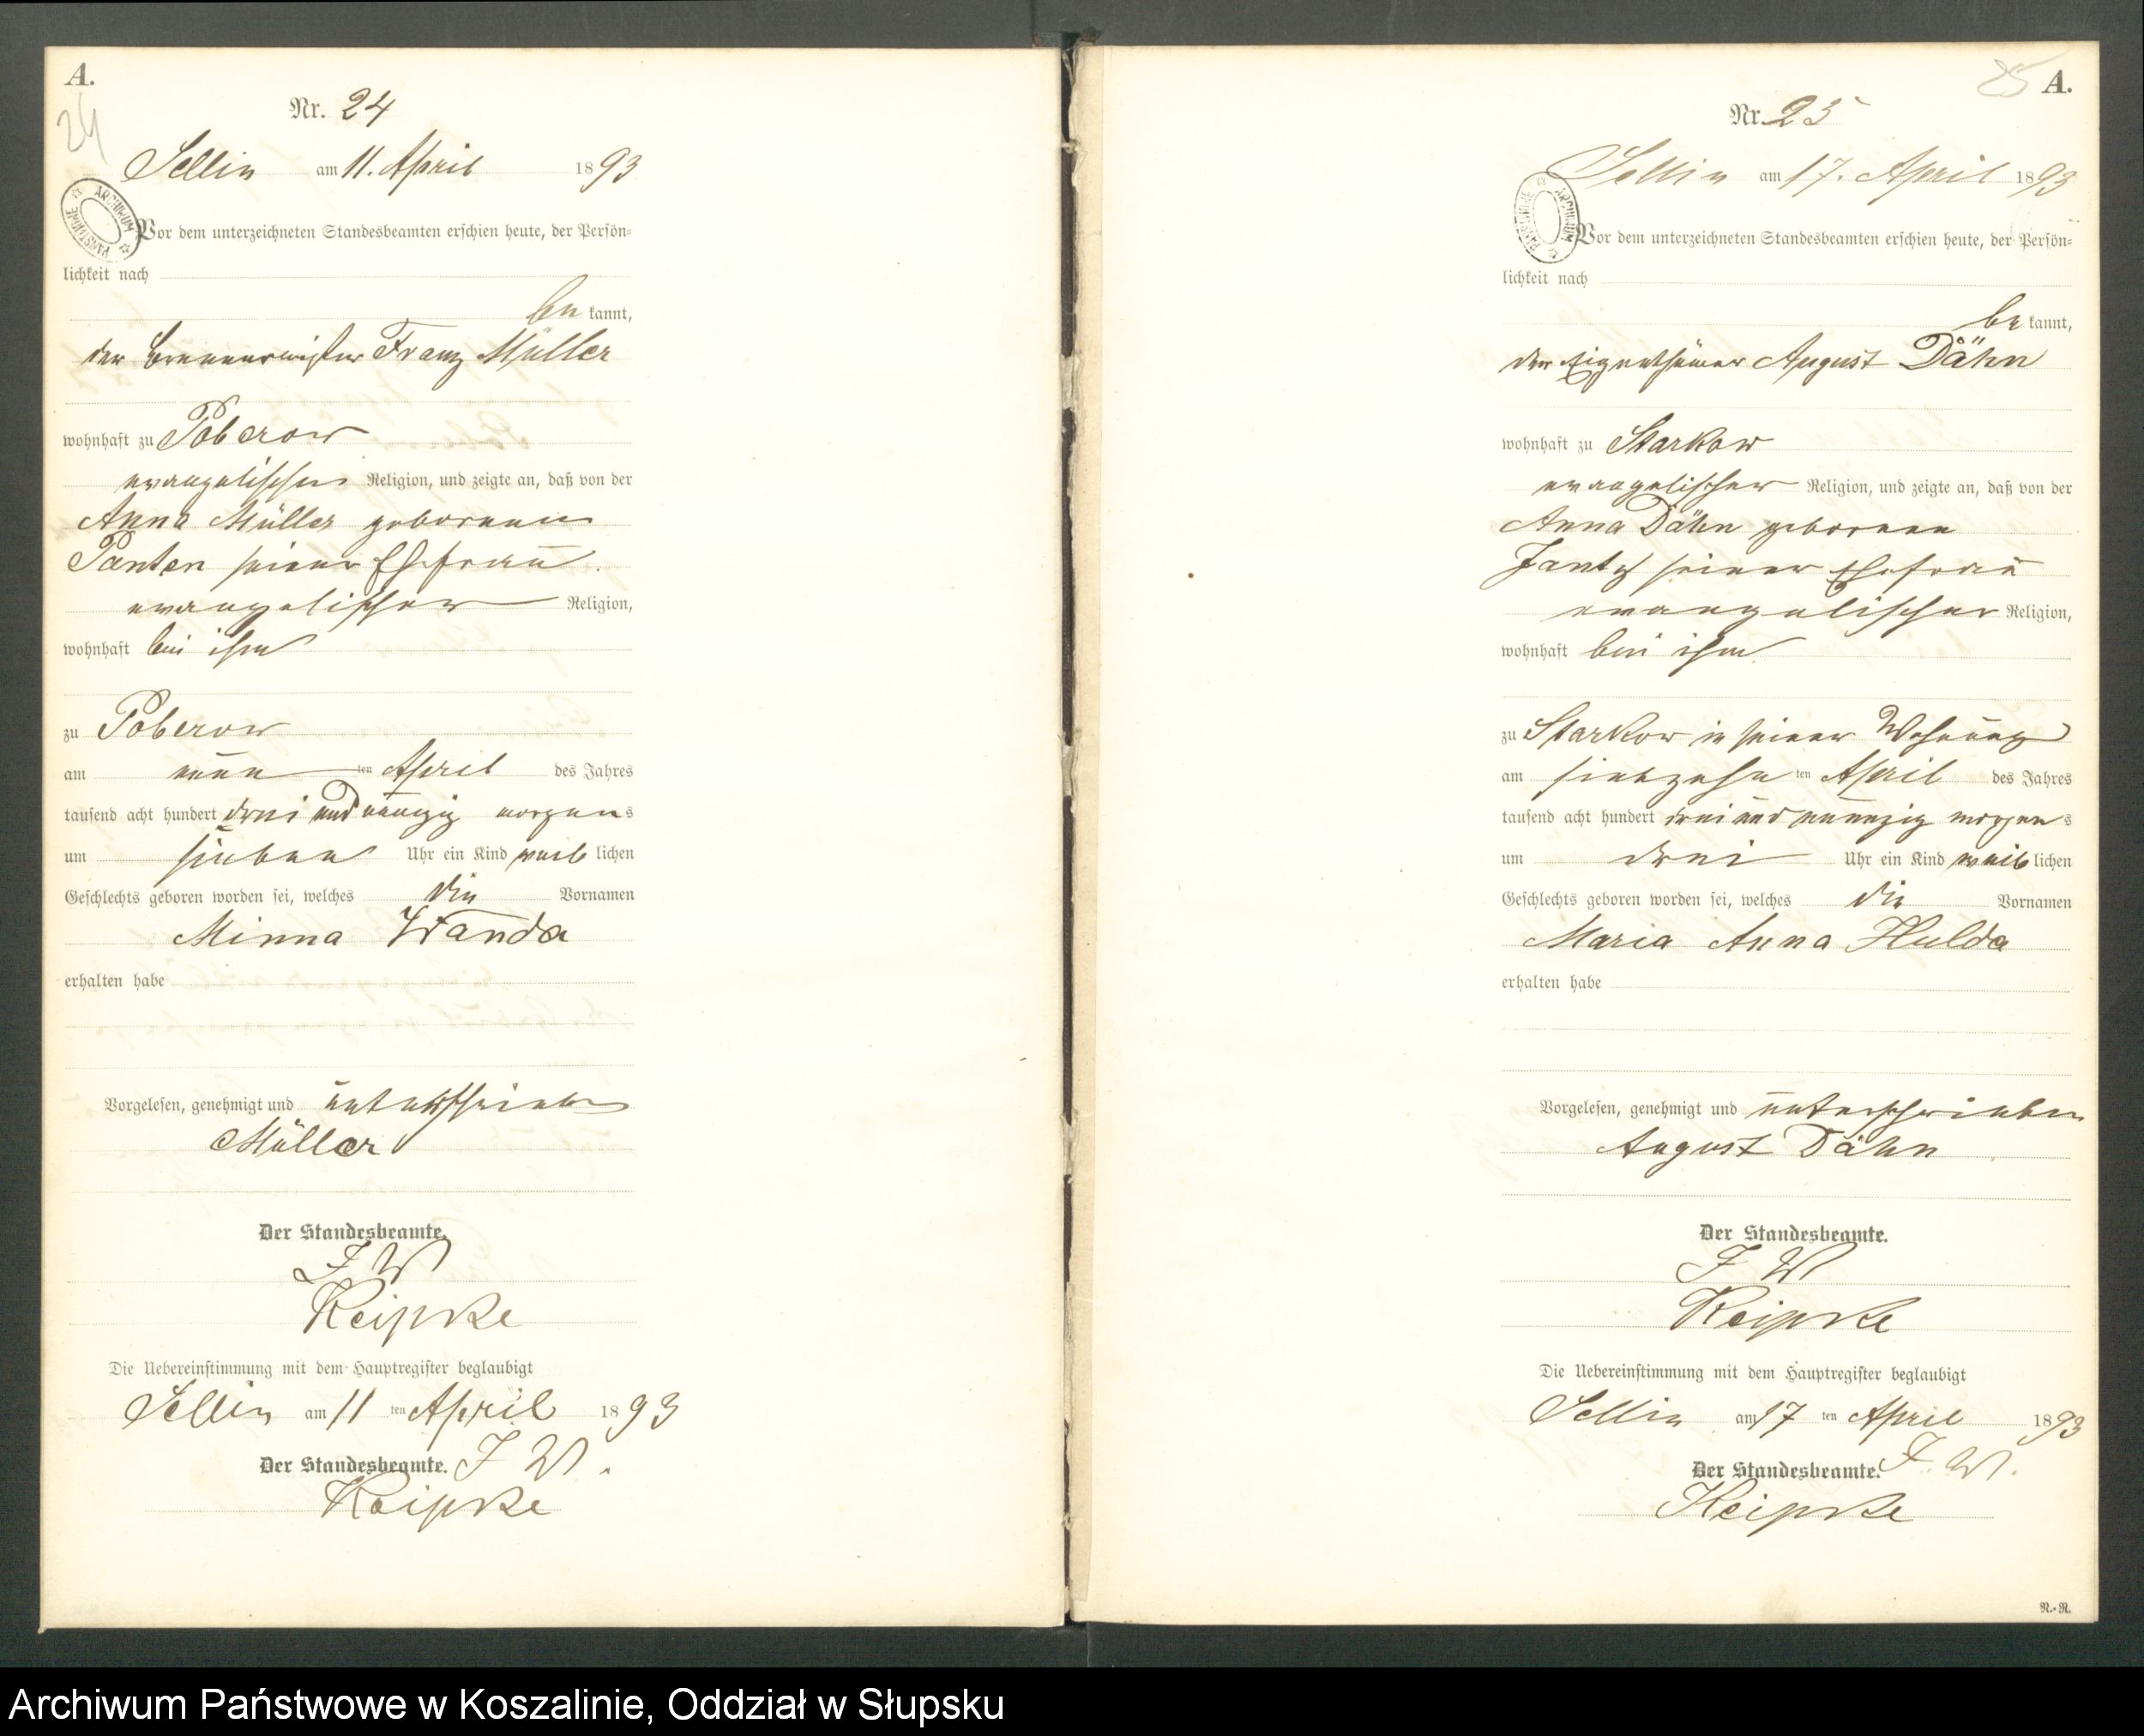 A.
24
Nr. 24
Sellin am 11. April 1893
ARCHIWUM PAŃSTWOWE
Vor dem unterzeichneten Standesbeamten erschien heute, der Persön=
lichkeit nach
be kannt,
der Brennermeister Franz Müller
wohnhaft zu Poberow
evangelischer Religion, und zeigte an, daß von der
Anna Müller geborenen
Panten seiner Ehefrau
evangelischer Religion,
wohnhaft bei ihm
zu Poberow
am neun ten April des Jahres
tausend acht hundert drei und neunzig morgens
um sieben Uhr ein Kind weiblichen
Geschlechts geboren worden sei, welches die Vornamen
Minna Wanda
erhalten habe
Vorgelesen, genehmigt und unterschrieben
Müller
Der Standesbeamte.
I W
Reipke
Die Uebereinstimmung mit dem Hauptregister beglaubigt
Sellin am 11 ten April 1893
Der Standesbeamte. I W.
Reipke
25 A.
Nr. 25
Sellin am 17. April 1893
ARCHIWUM PAŃSTWOWE
Vor dem unterzeichneten Standesbeamten erschien heute, der Persön=
lichkeit nach
be kannt,
der Eigenthümer August Dähn
wohnhaft zu Starkow
evangelischer Religion, und zeigte an, daß von der
Anna Dähn geborenen
Jantz seiner Ehefrau
evangelischer Religion,
wohnhaft bei ihm
zu Starkow in seiner Wohnung
am siebzehn ten April des Jahres
tausend acht hundert drei und neunzig morgens
um drei Uhr ein Kind weiblichen
Geschlechts geboren worden sei, welches die Vornamen
Maria Anna Hulda
erhalten habe
Vorgelesen, genehmigt und unterschrieben
August Dähn
Der Standesbeamte.
I W
Reipke
Die Uebereinstimmung mit dem Hauptregister beglaubigt
Sellin am 17 ten April 1893
Der Standesbeamte. I. W.
Reipke
R.-R.
Archiwum Państwowe w Koszalinie, Oddział w Słupsku